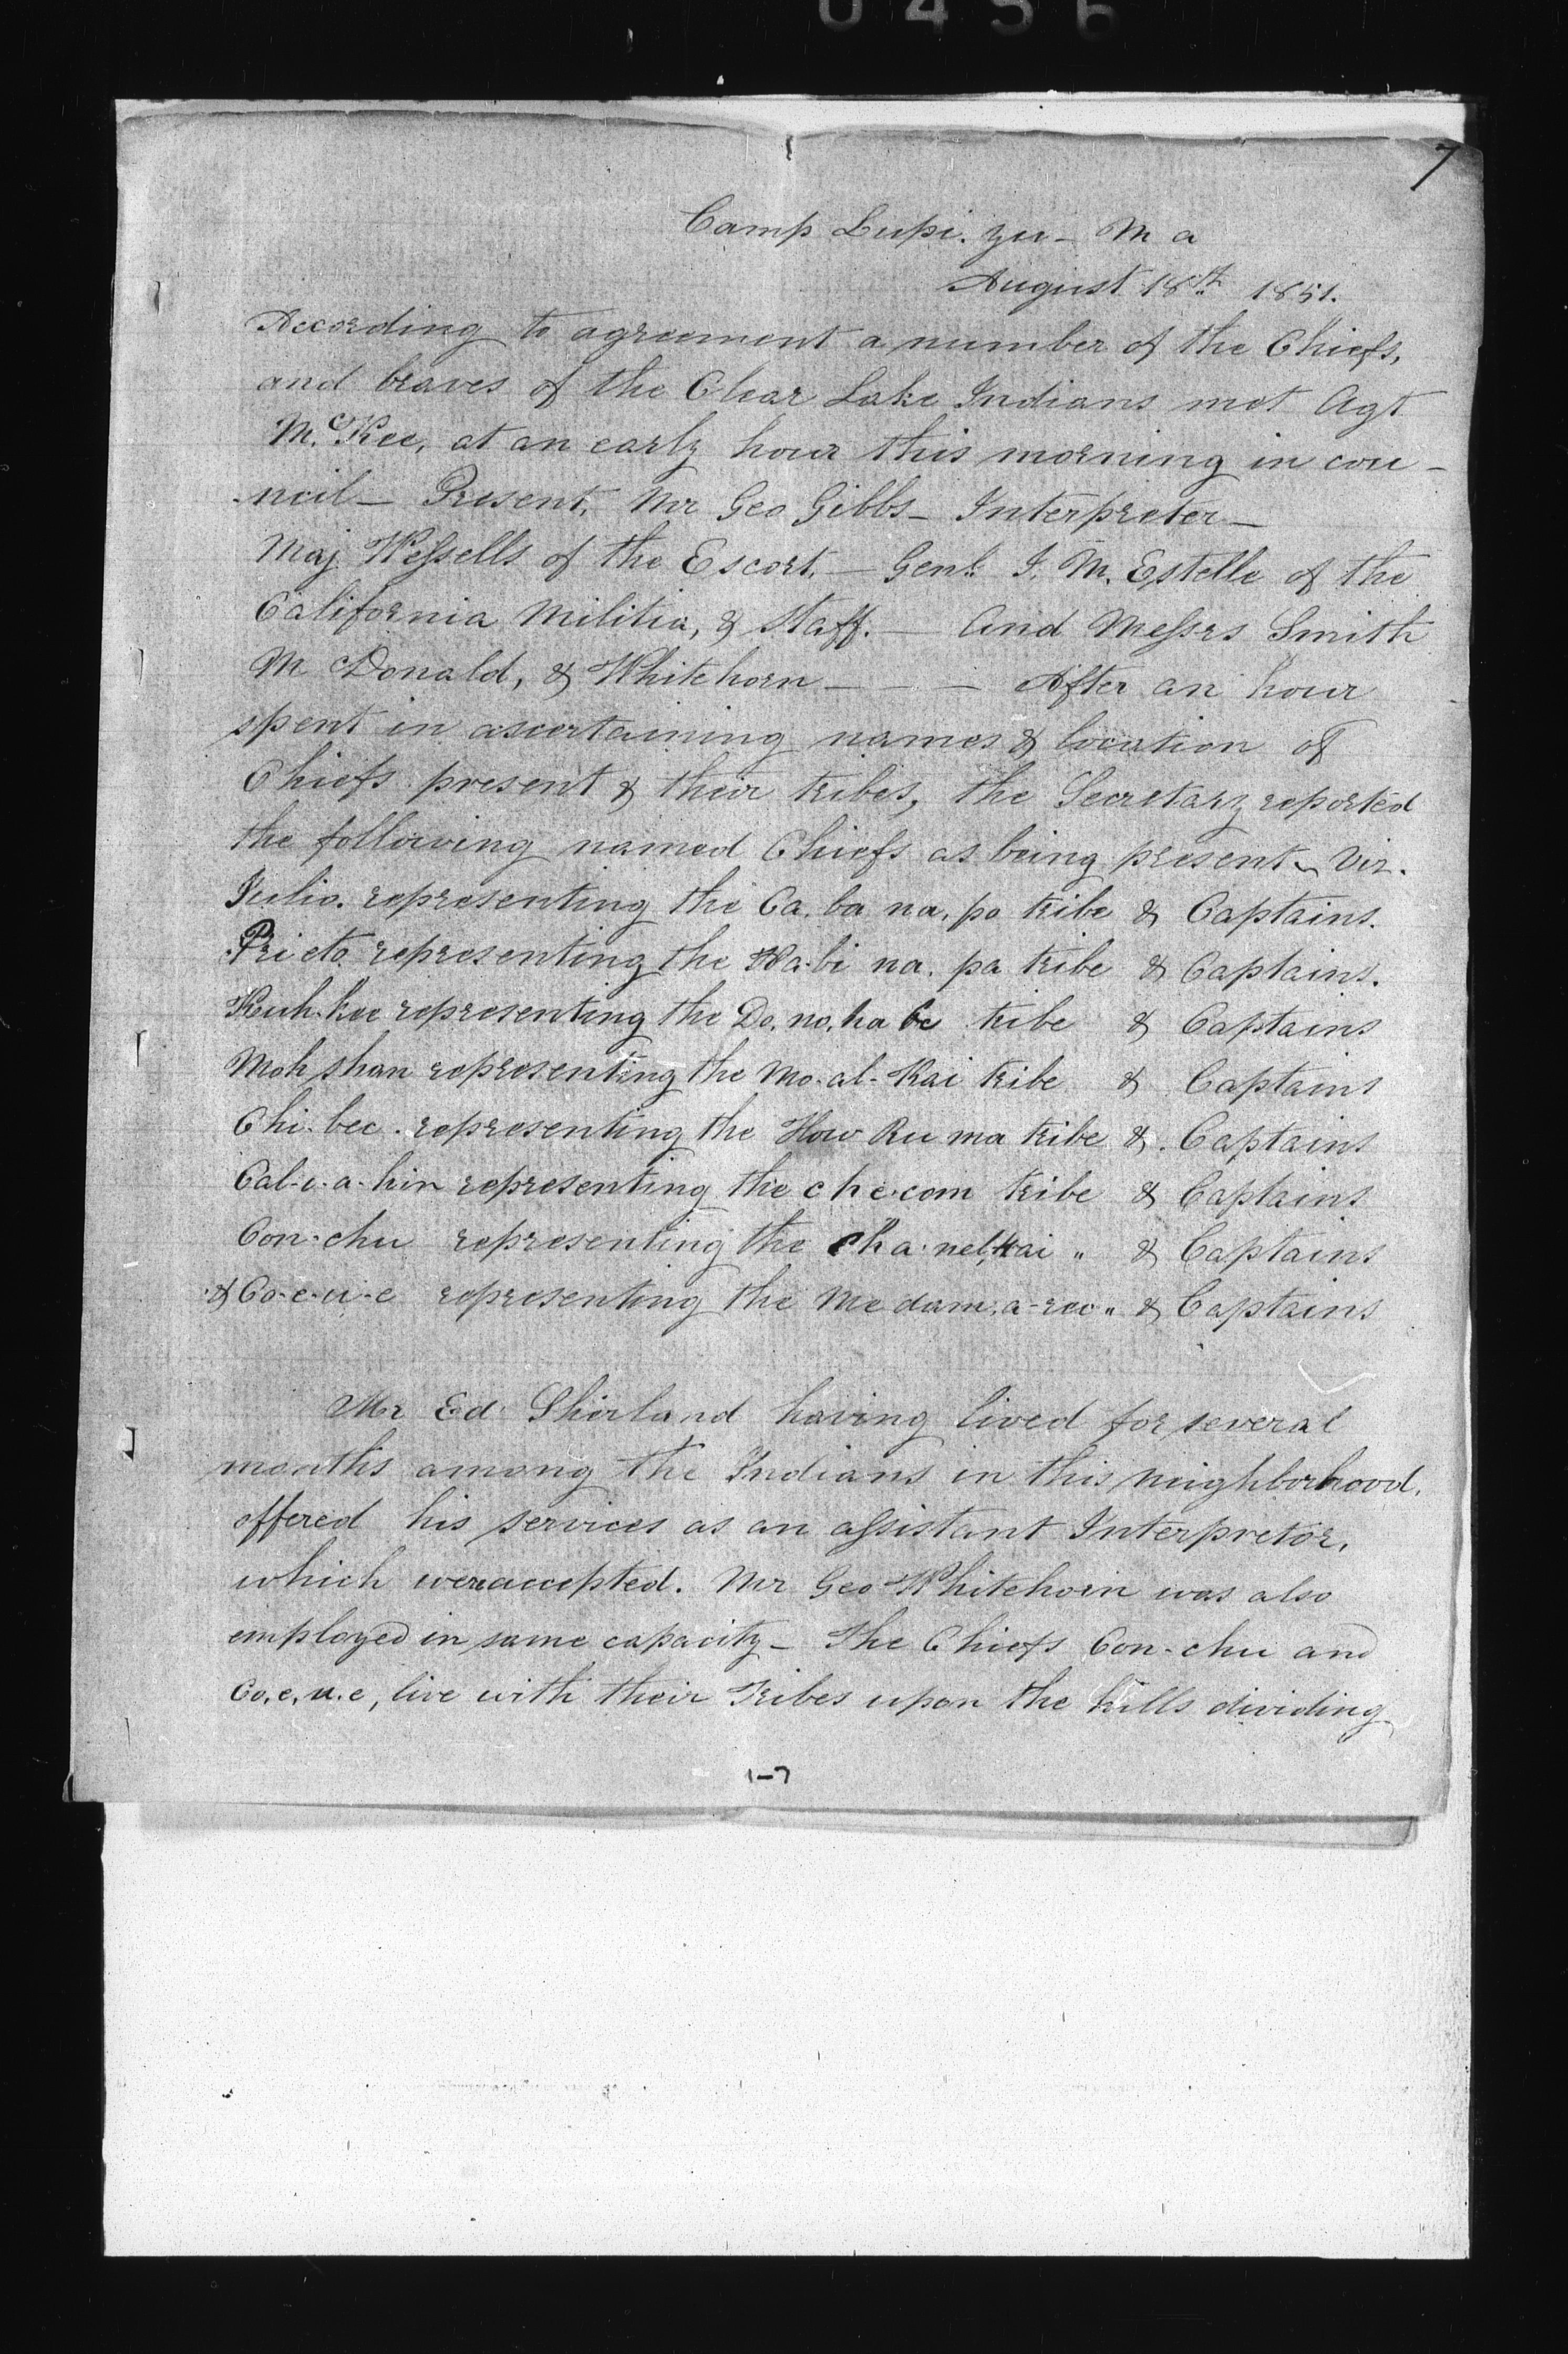 0456
7
Camp Lupi. yu - M a
August 18th 1851.
According to agreement a number of the Chiefs,
and braves of the Clear Lake Indians met Agt
McKee, at an early hour this morning in cou-
ncil - Present, Mr Geo Gibbs - Interpreter -
Maj. Wessells of the Escort. - Genl. J. M. Estelle of the
California Militia, & Staff. - And Messrs Smith
McDonald, & Whitehorn - - - After an hour
spent in ascertaining names & location of
Chiefs present & their tribes, the Secretary reported
the following named Chiefs as being present - Viz.
Julio. representing the Ca. ba na. po tribe & Captains.
Prieto representing the Ha-bi na. pa tribe & Captains.
Kuh-kee representing the Do. no. ha be tribe & Captains
Moh shan representing the Mo-al-Kai tribe & Captains
Chi-bec. representing the How Ru ma tribe & Captains
Cal-i-a-him representing the che-com tribe & Captains
Con-chu representing the cha-nel, Kai " & Captains
& Co-e-u-e representing the Me dam, a-rec " & Captains
Mr Ed Shirland having lived for several
months among the Indians in this neighborhood.
offered his services as an assistant Interpretor,
which were accepted. Mr Geo Whitehorn was also
employed in same capacity - The Chiefs Con-chu and
Co. e. u. e, live with their Tribes upon the hills dividing
1-7